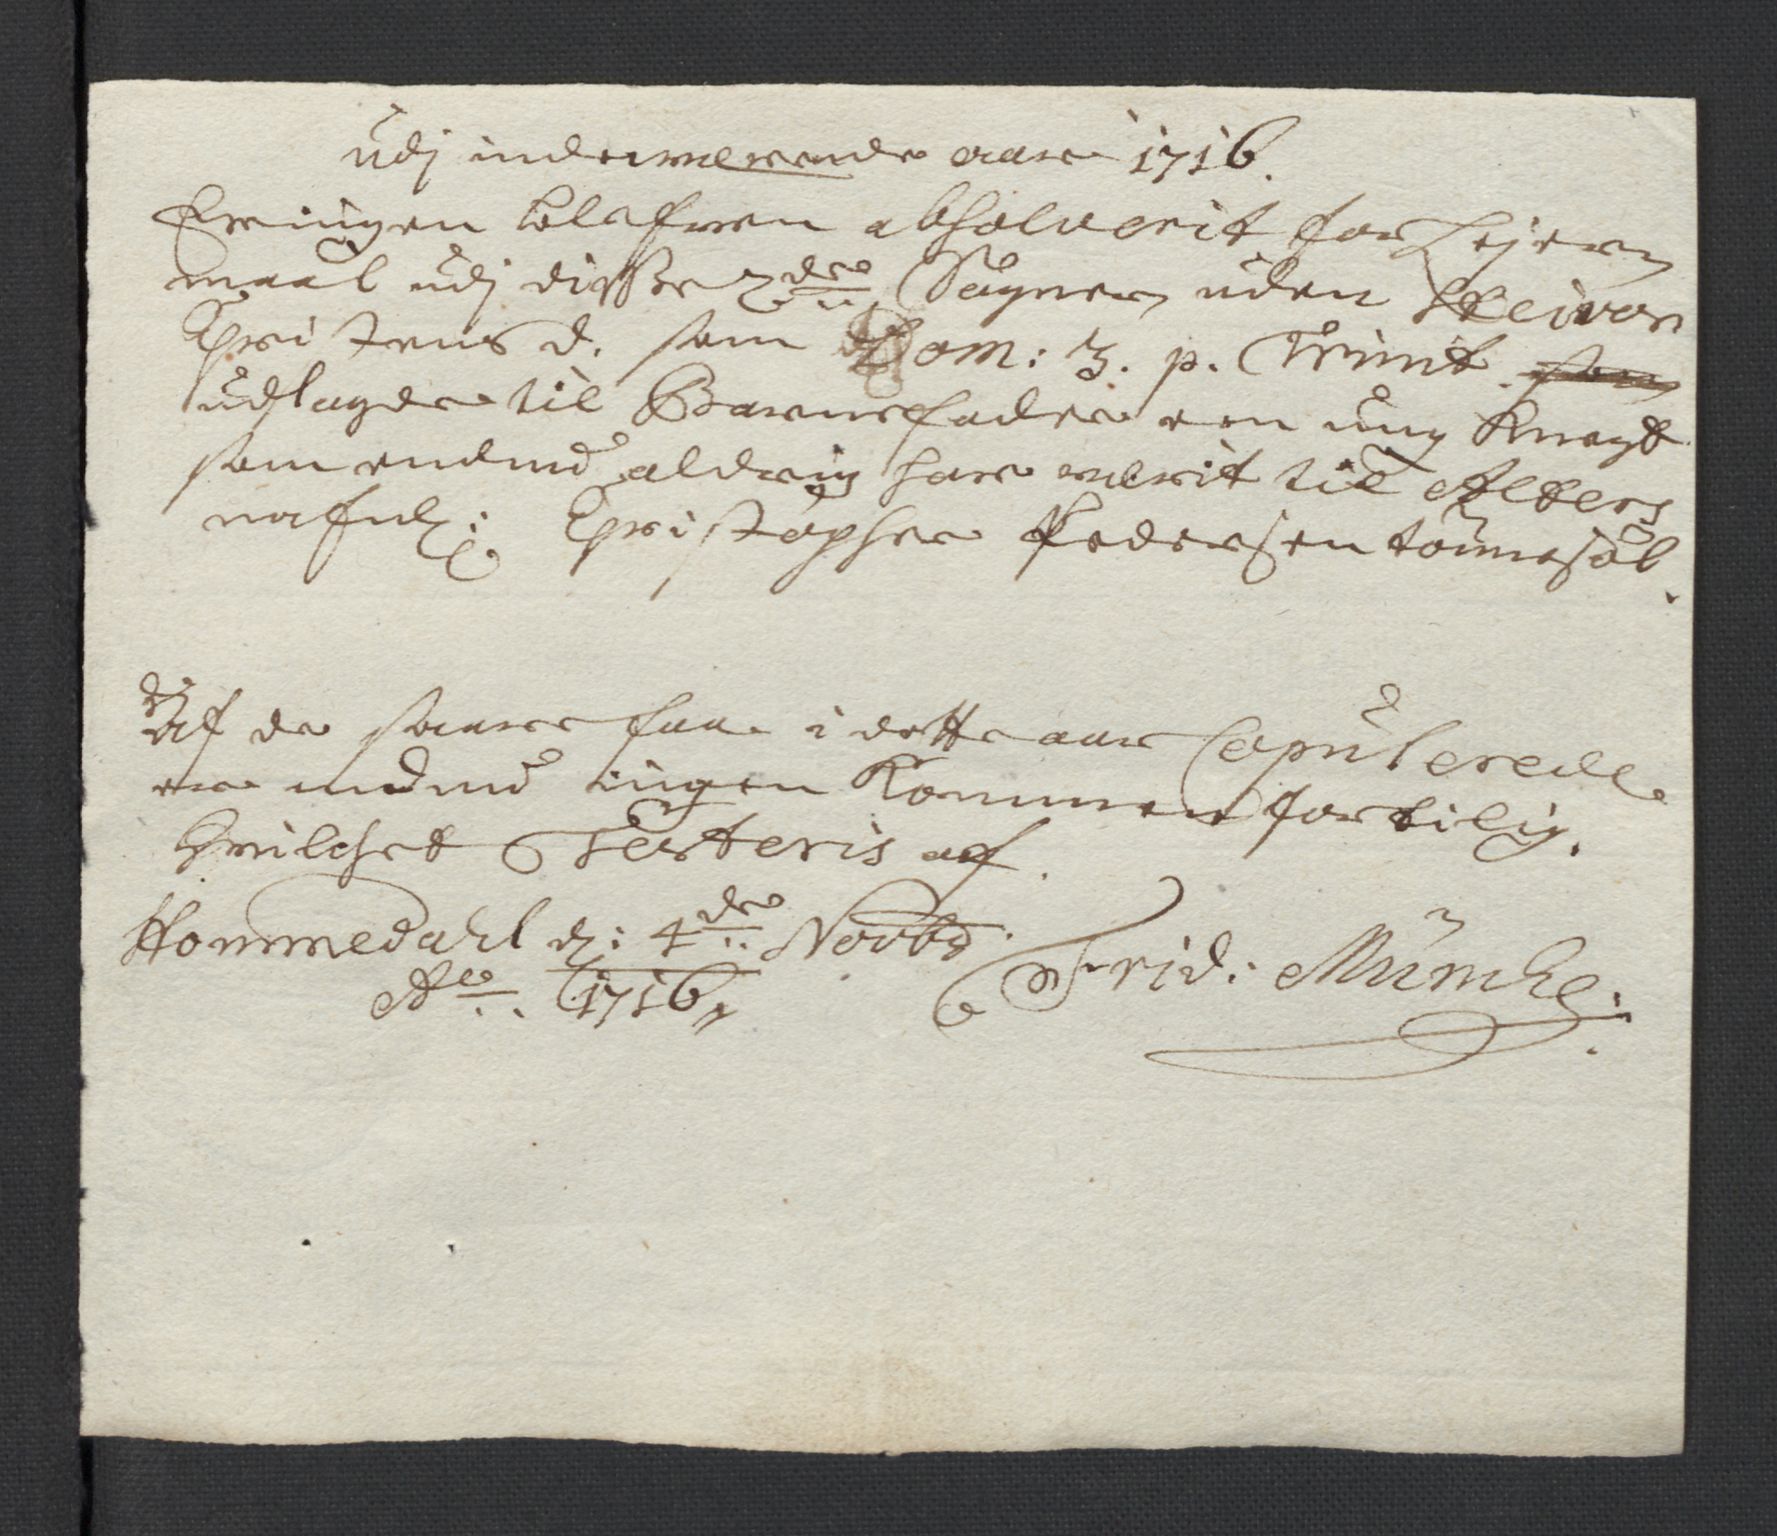 udj inderwerende aar 1716.
Er ingen blefwen absolverit for Lejer,,
maal udj disse 2de Sogner, uden
Christens d. som Dom: 3. p. Trinit
udlagde til Barnefader en ung Knegt
som endnu aldrig har werit til Alters
nafnl: Christopher Pedersen tönnesöl.
Af de faa i dette aar Copulerede
er endnu ingen Kommen for tilig.
Hwilchet Testeris af
Hommedahl d: 4de Novbr
Ao 1716,, Frid: Münche: